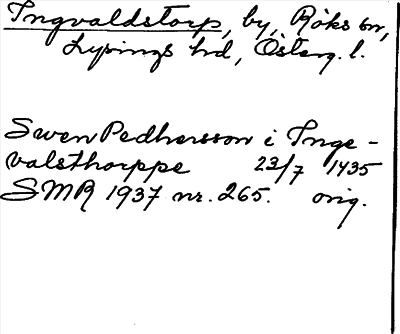 Ingvaldstorp, by, Röks sn,
Lysings hd, Österg. l.
Swen Pedhersson i Inge-
valsthorppe 23/7 1435
SMR 1937 nr. 265. orig.